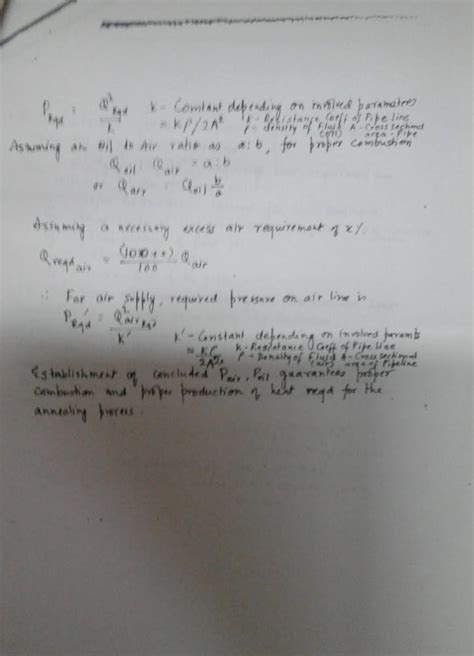 P Rqd = Q² Rqd / k   k - Constant depending on involved parameters
= Kρ/2A²   k - Resistance Coeff of Pipe line
ρ - density of Fluid A - Cross sectional
(oil) area - Pipe
Assuming an Oil to Air ratio as a:b, for proper combustion
Q oil : Q air = a:b
or Q air = Q oil b/a
Assuming a necessary excess air requirement of x%.
Q reqd air = (100+x)/100 Q air
∴ For air supply, required pressure on air line is
P'Rqd = Q² air Rqd / k'
k' - Constant depending on involved params
= Kρ/2A² k - Resistance Coeff of Pipe line
ρ - Density of Fluid A - Cross sectional
(air) area of Pipeline
Establishment of concluded P air, P oil guarantees proper
combustion and proper production of heat reqd for the
annealing process.